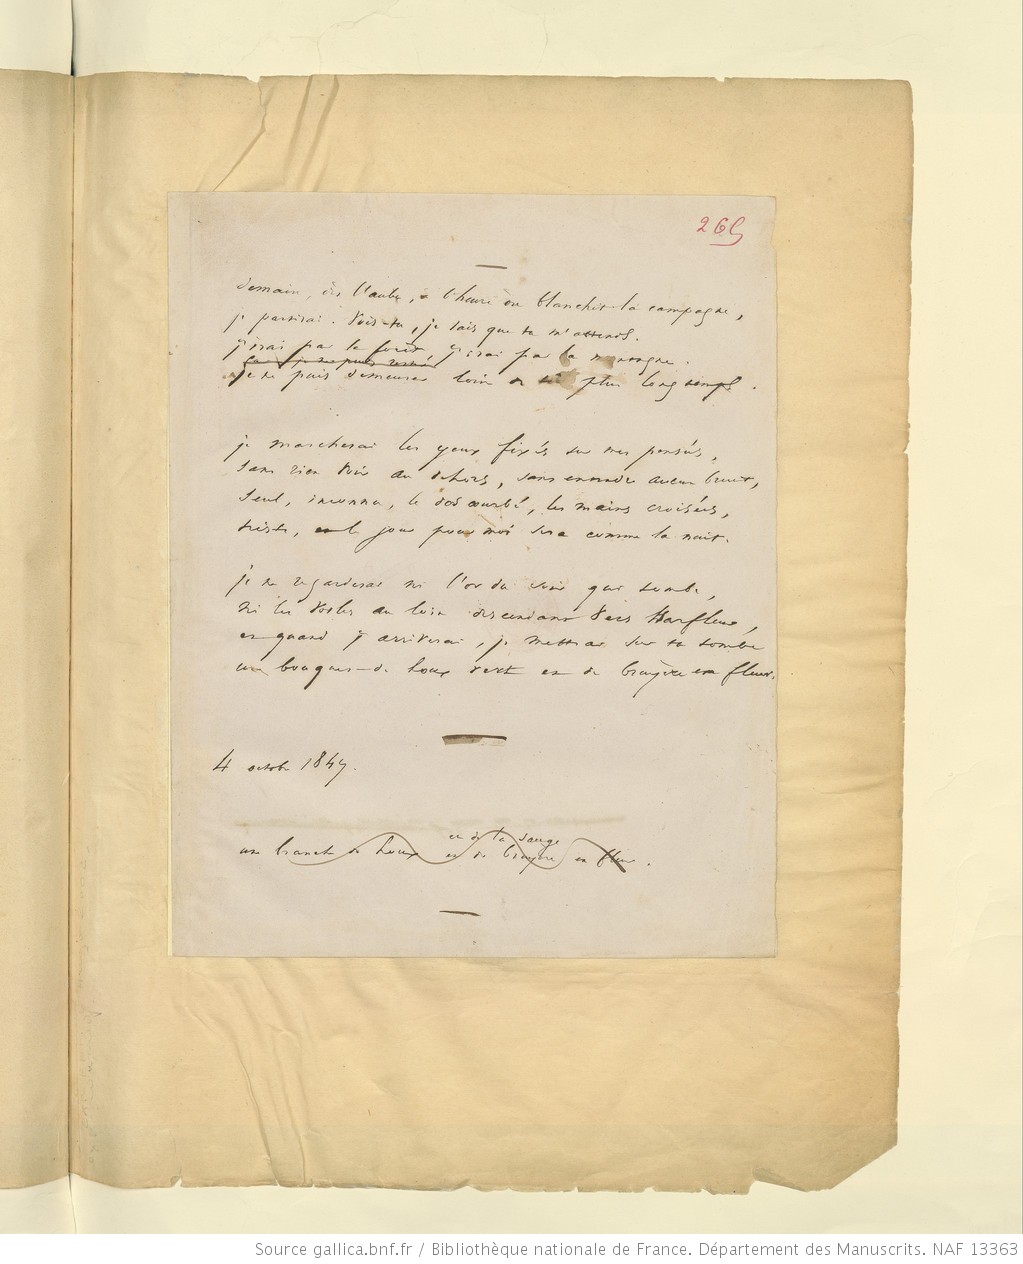 265
demain, dès l'aube, à l'heure où blanchit la campagne,
je partirai. Vois-tu, je sais que tu m'attends.
j'irai par la forêt, j'irai par la montagne.
car je ne puis rester
je ne puis demeurer loin de toi plus longtemps.
je marcherai les yeux fixés sur mes pensées,
sans rien voir au dehors, sans entendre aucun bruit,
seul, inconnu, le dos courbé, les mains croisées,
triste, et le jour pour moi sera comme la nuit.
je ne regarderai ni l'or du soir qui tombe,
ni les voiles au loin descendant vers Harfleur,
et quand j'arriverai, je mettrai sur ta tombe
un bouquet de houx vert et de bruyère en fleur.
4 octobre 1847.
et de la sauge
une branche de houx et de bruyère en fleur.
Source gallica.bnf.fr / Bibliothèque nationale de France. Département des Manuscrits. NAF 13363